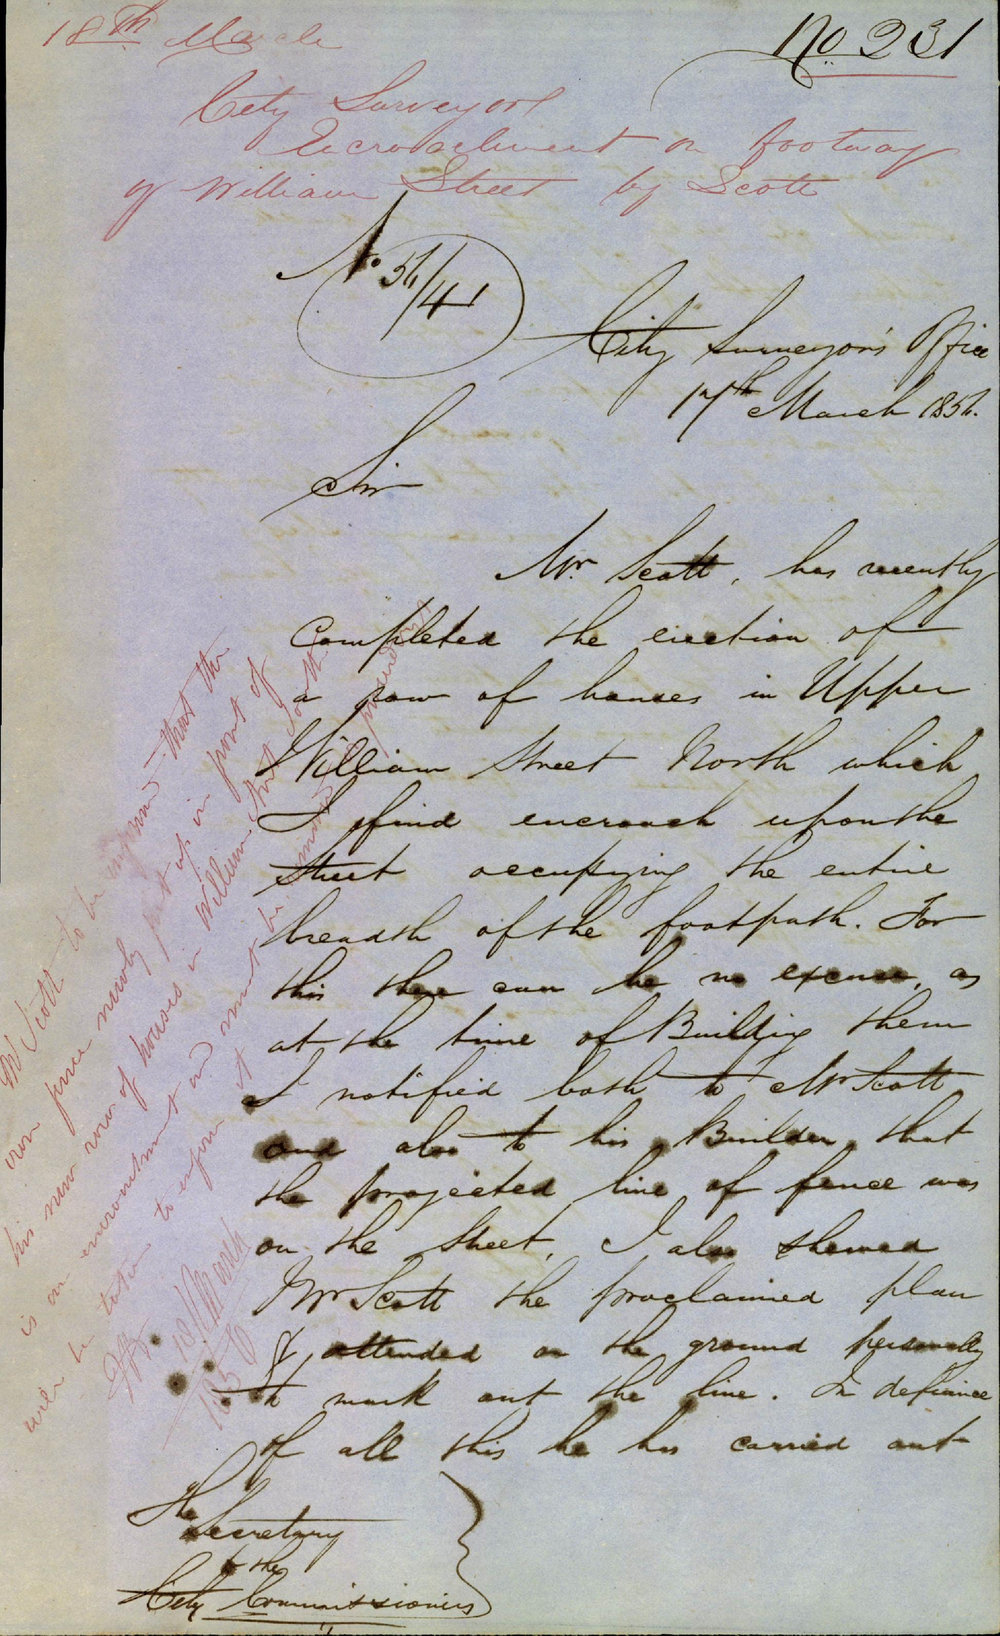 18th March
No 231
City Surveyor
Encroachment on footway
of William Street by Scott
No. 56/41
City Surveyor's Office
17th March 1856.
Sir
Mr. Scott, has recently
completed the erection of
a row of houses in Upper
William Street North which
I find encroach upon the
Street occupying the entire
breadth of the footpath. For
this there can be no excuse, as
at the time of Building them
I notified both to Mr Scott
and also to his Builder, that
the projected line of fence was
on the Street, I also shewed
Mr Scott the proclaimed plan
& attended on the ground personally
to mark out the line. In defiance
of all this he has carried out
The Secretary
to the
City Commissioners
Mr Scott to be informed that the
iron fence newly put up in front of
his new row of houses in William Street South
is an encroachment and must be removed
will be taken to enforce it
18 March
1856